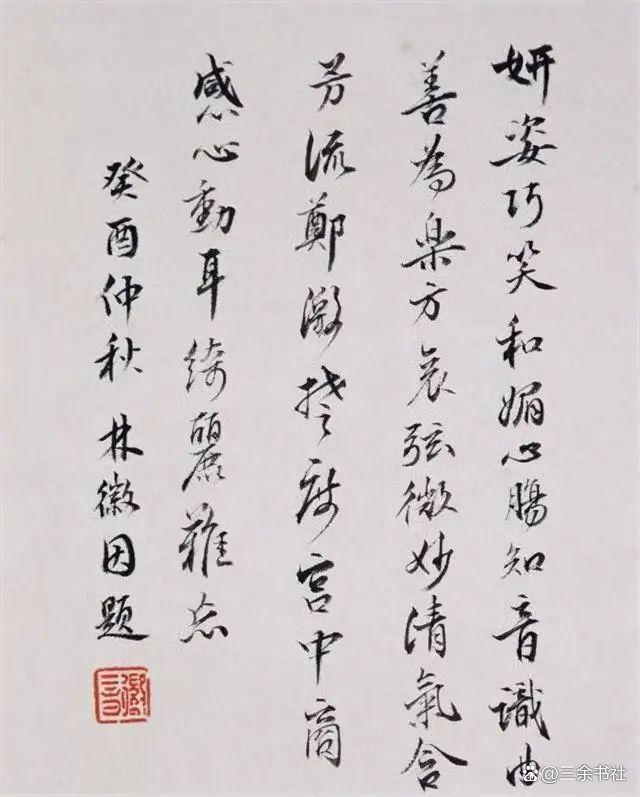 妍姿巧笑和媚心腸知音識曲
善為樂方哀弦微妙清氣含
芳流鄭激楚度宮中商
感心動耳綺麗難忘
癸酉仲秋 林徽因題
徽音
@三余书社